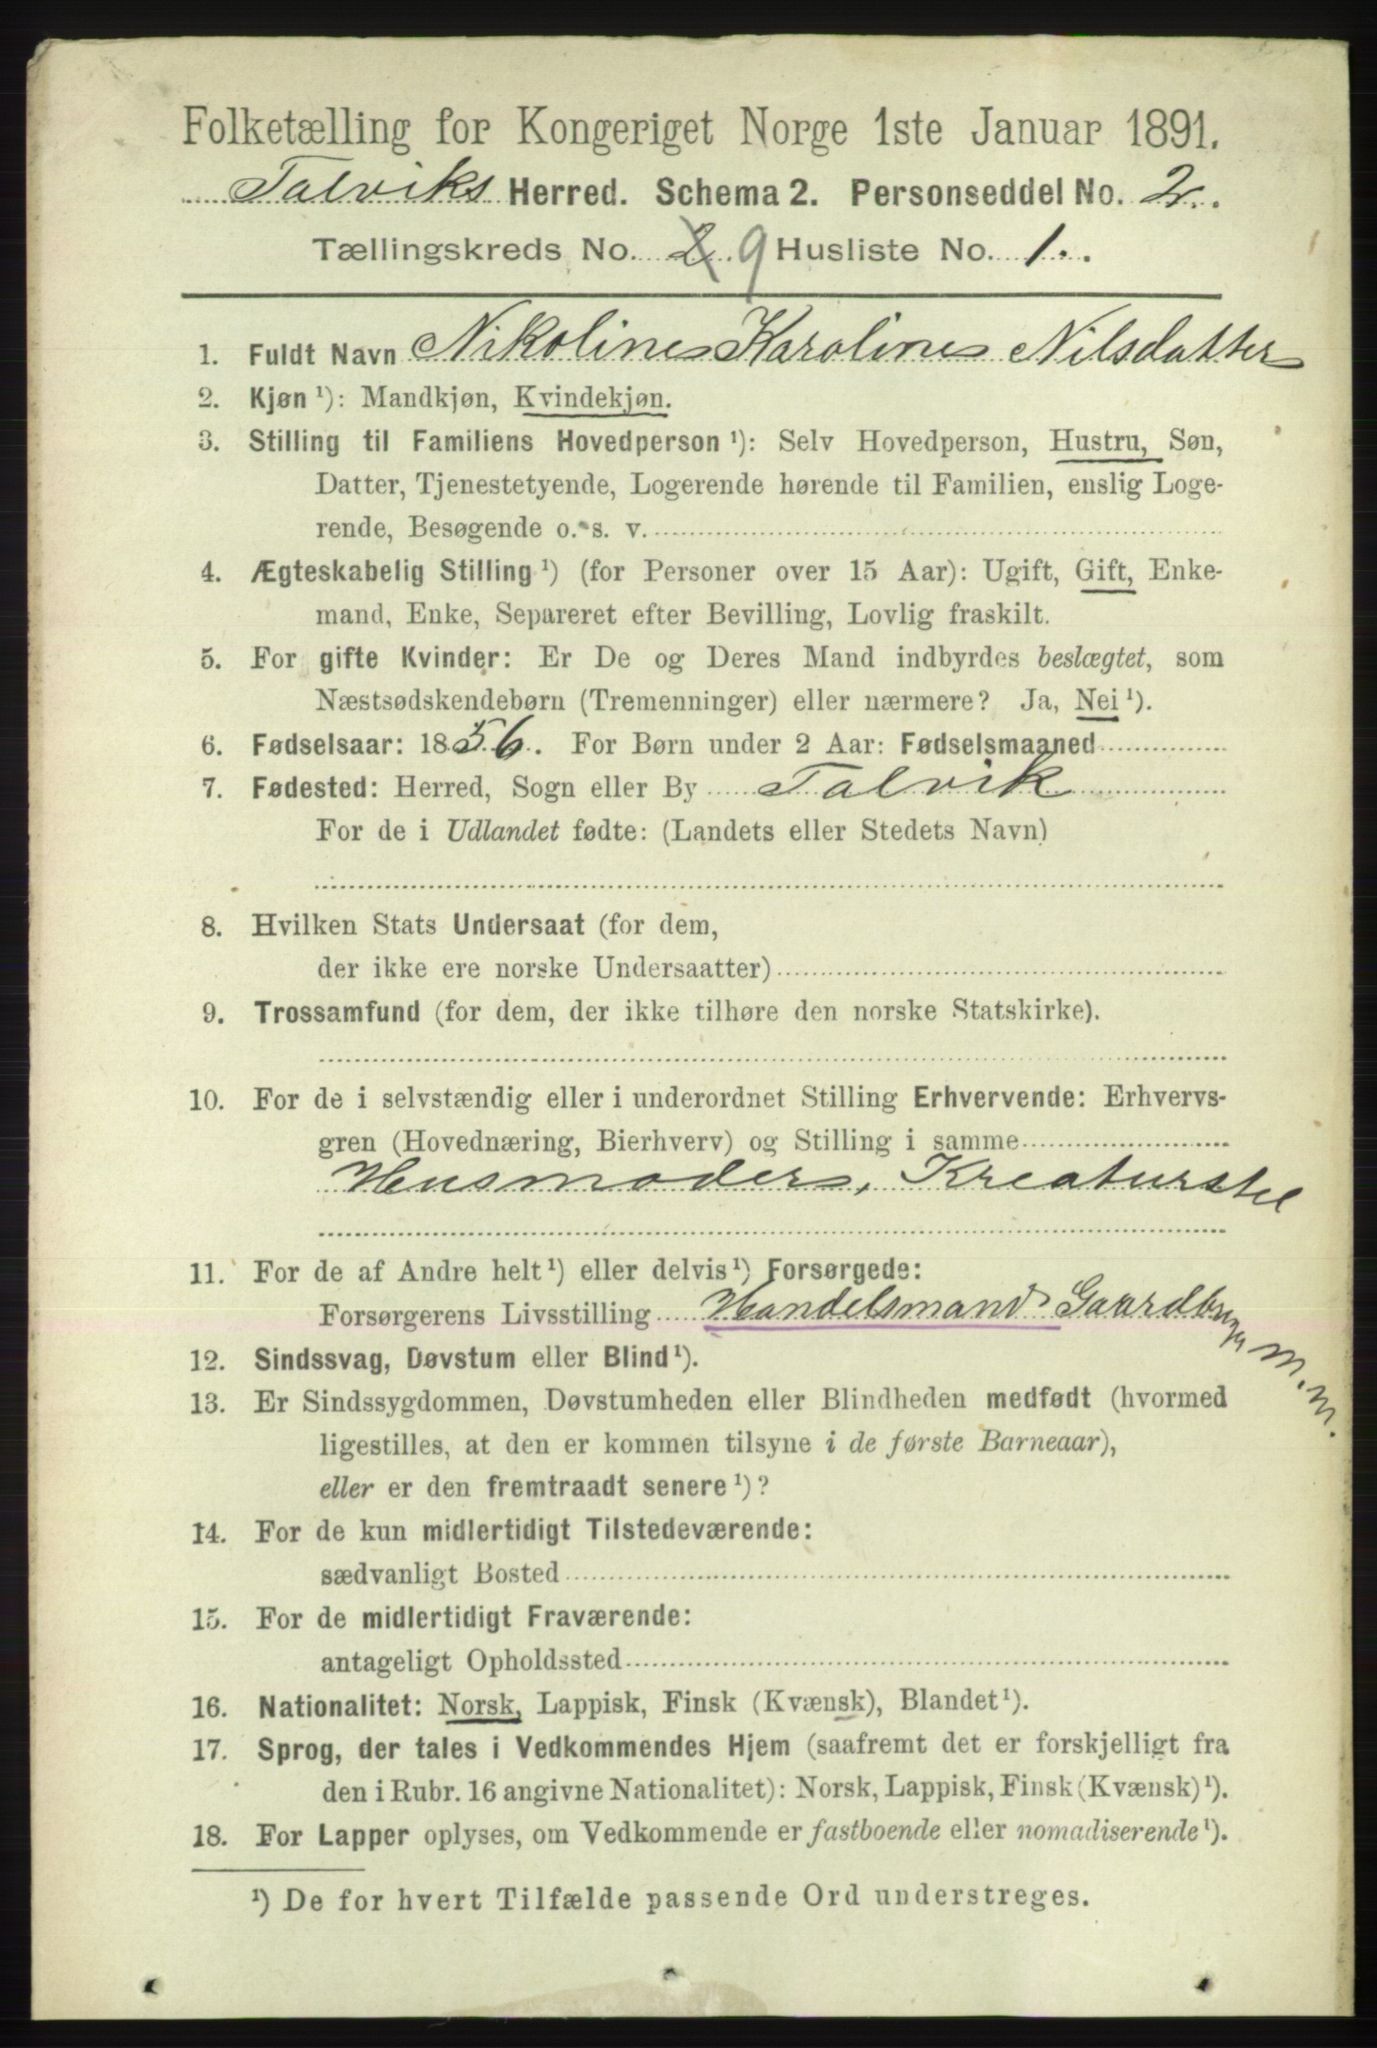 Folketælling for Kongeriget Norge 1ste Januar 1891.
Talviks Herred. Schema 2. Personseddel No. 2.
Tællingskreds No. 2 9 Husliste No. 1.
1. Fuldt Navn Nikoline Karoline Nilsdatter
2. Kjøn ¹): Mandkjøn, Kvindekjøn.
3. Stilling til Familiens Hovedperson ¹): Selv Hovedperson, Hustru, Søn,
Datter, Tjenestetyende, Logerende hørende til Familien, enslig Loge-
rende, Besøgende o. s. v.
4. Ægteskabelig Stilling ¹) (for Personer over 15 Aar): Ugift, Gift, Enke-
mand, Enke, Separeret efter Bevilling, Lovlig fraskilt.
5. For gifte Kvinder: Er De og Deres Mand indbyrdes beslægtet, som
Næstsødskendebørn (Tremenninger) eller nærmere? Ja, Nei ¹).
6. Fødselsaar: 1856. For Børn under 2 Aar: Fødselsmaaned
7. Fødested: Herred, Sogn eller By Talvik
For de i Udlandet fødte: (Landets eller Stedets Navn)
8. Hvilken Stats Undersaat (for dem,
der ikke ere norske Undersaatter)
9. Trossamfund (for dem, der ikke tilhøre den norske Statskirke).
10. For de i selvstændig eller i underordnet Stilling Erhvervende: Erhvervs-
gren (Hovednæring, Bierhverv) og Stilling i samme
Husmoders, Kreaturstel
11. For de af Andre helt ¹) eller delvis ¹) Forsørgede:
Forsørgerens Livsstilling Handelsmand Gaardbruger m. m.
12. Sindssvag, Døvstum eller Blind ¹).
13. Er Sindssygdommen, Døvstumheden eller Blindheden medfødt (hvormed
ligestilles, at den er kommen tilsyne i de første Barneaar),
eller er den fremtraadt senere ¹)?
14. For de kun midlertidigt Tilstedeværende:
sædvanligt Bosted
15. For de midlertidigt Fraværende:
antageligt Opholdssted
16. Nationalitet: Norsk, Lappisk, Finsk (Kvænsk), Blandet ¹).
17. Sprog, der tales i Vedkommendes Hjem (saafremt det er forskjelligt fra
den i Rubr. 16 angivne Nationalitet): Norsk, Lappisk, Finsk (Kvænsk) ¹).
18. For Lapper oplyses, om Vedkommende er fastboende eller nomadiserende ¹).
¹) De for hvert Tilfælde passende Ord understreges.